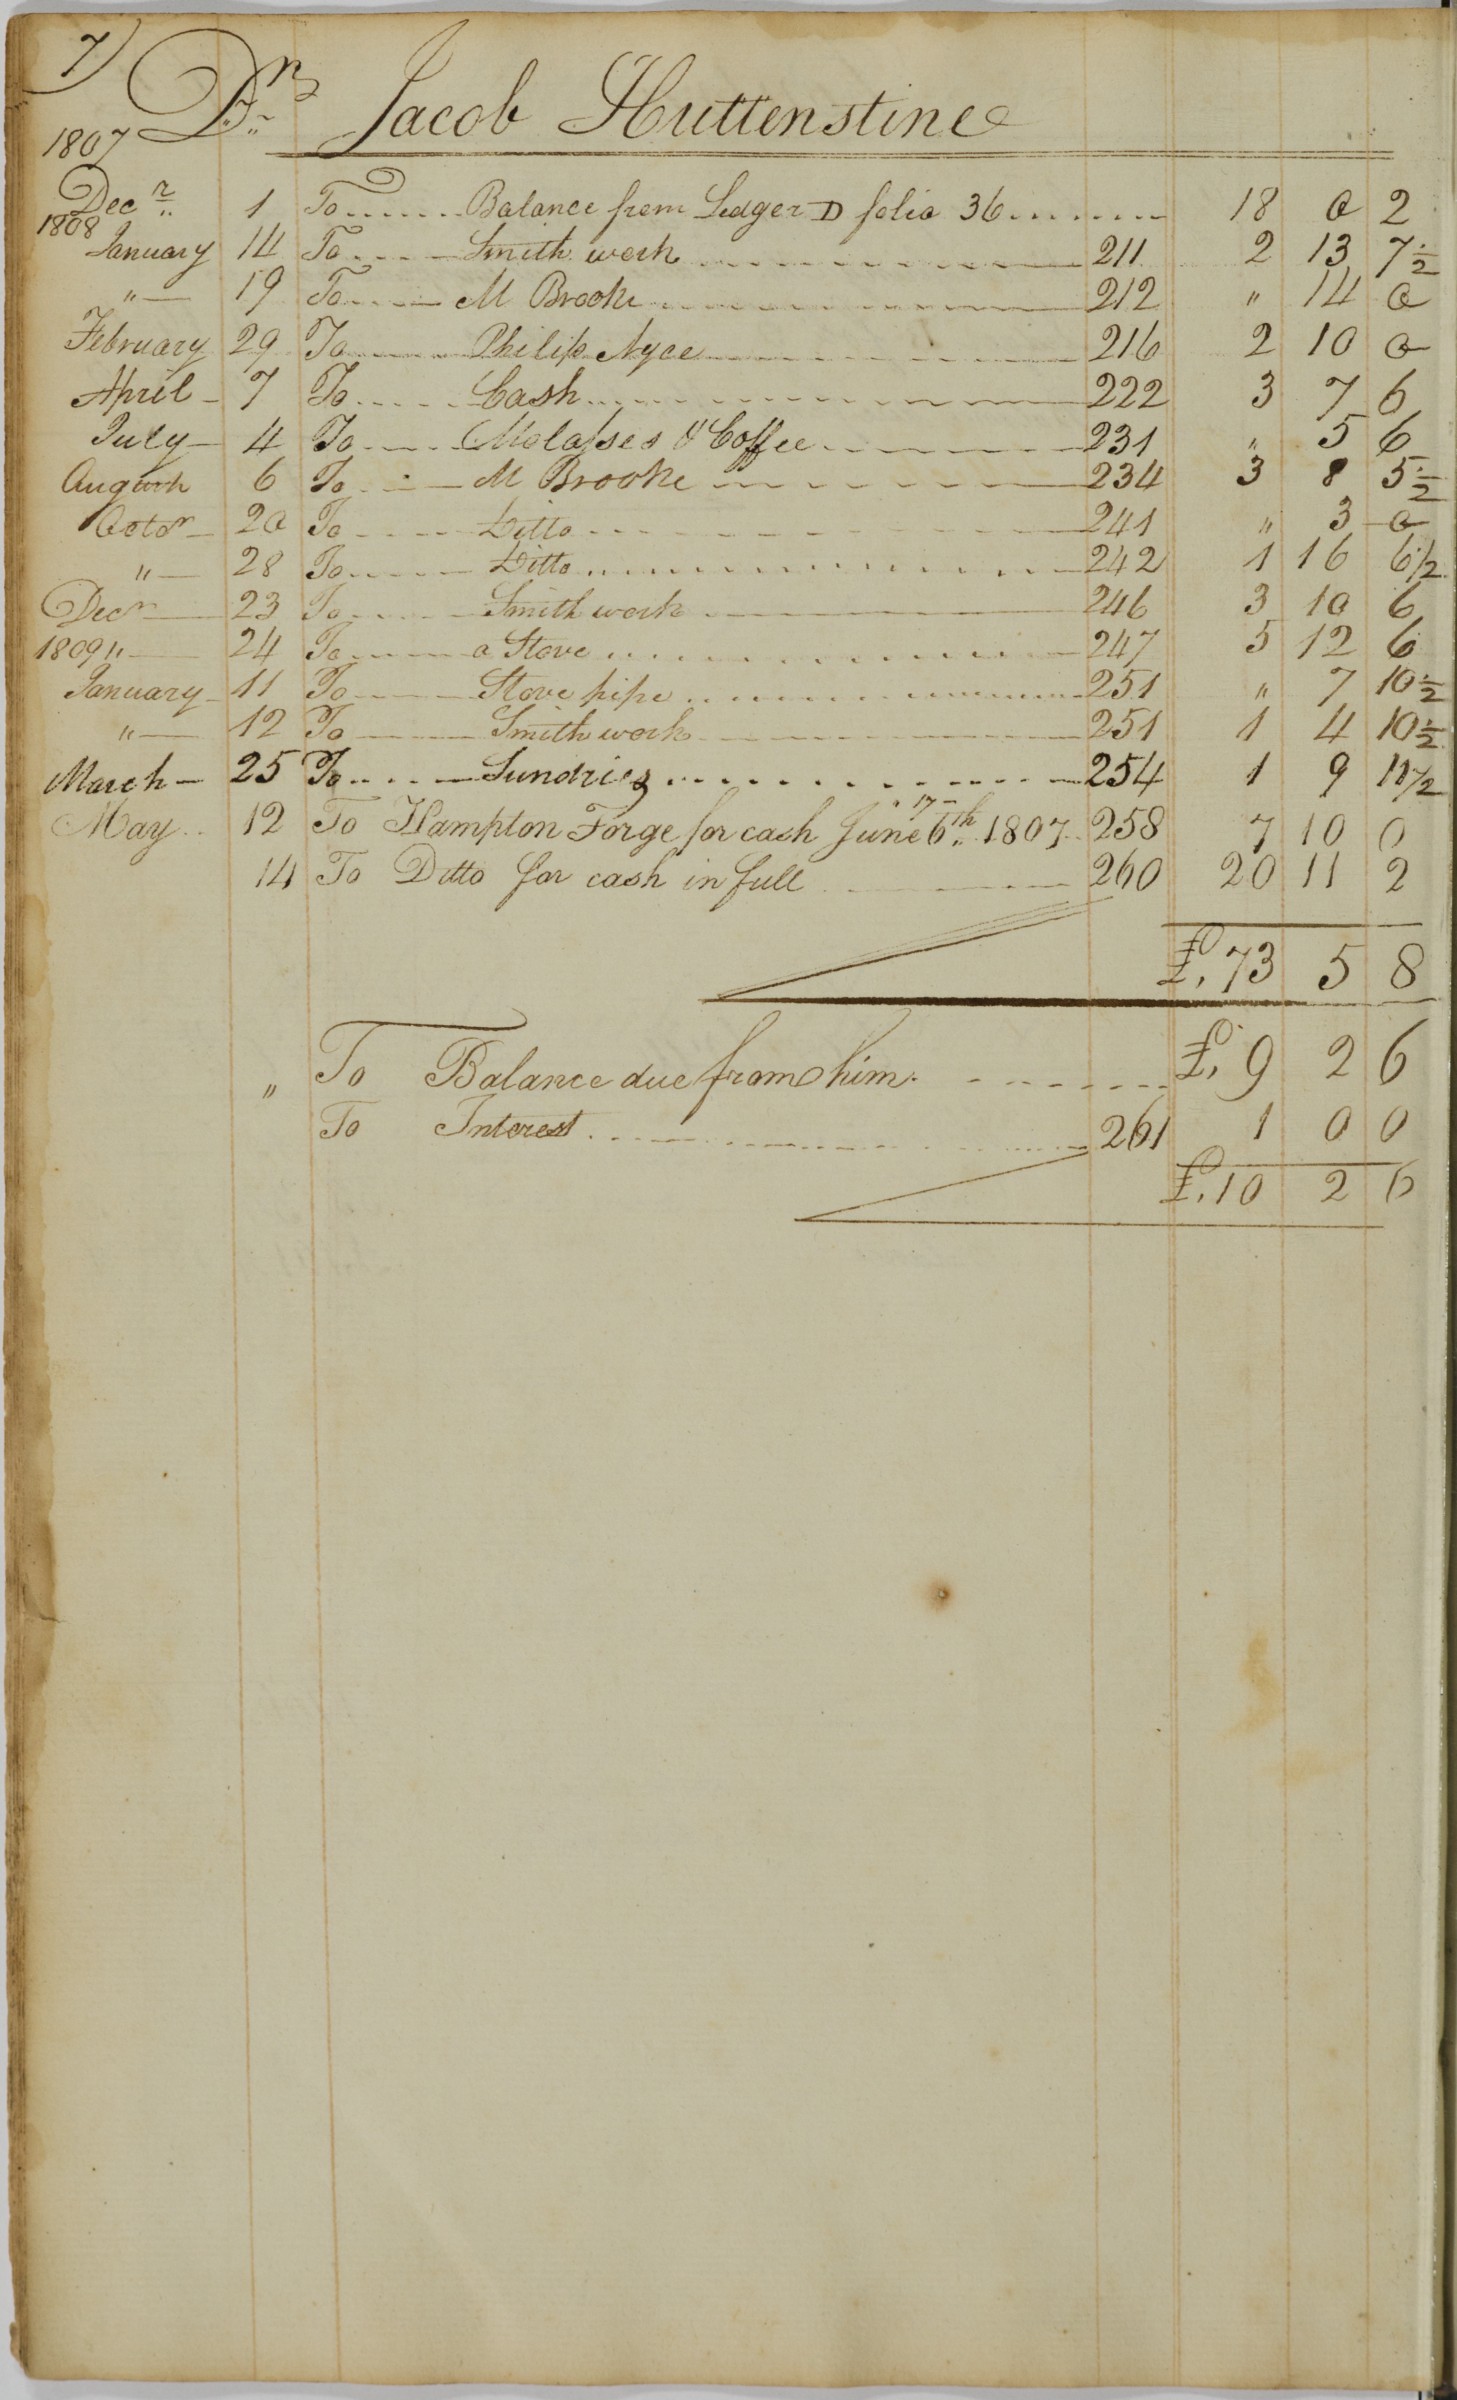 7) Dr. Jacob Huttenstine
1807
Decr. 1 To Balance from Ledger D folio 36 18 0 2
1808
January 14 To Smith work 211 2 13 7½
" 19 To M Brooke 212 " 14 0
February 29 To Philip Nyce 216 2 10 0
April 7 To Cash 222 3 7 6
July 4 To Molasses & Coffee 231 " 5 6
August 6 To M Brooke 234 3 8 5½
Octor 20 To Ditto 241 " 3 0
" 28 To Ditto 242 1 16 6½
Decr 23 To Smith work 246 3 10 6
1809 " 24 To a Stove 247 5 12 6
January 11 To Stove pipe 251 " 7 10½
" 12 To Smith work 251 1 4 10½
March 25 To Sundries 254 1 9 11½
May 12 To Hampton Forge for cash June 6th 17 1807 258 7 10 0
14 To Ditto for cash in full 260 20 11 2
£. 73 5 8
" To Balance due from him £. 9 2 6
To Interest 261 1 0 0
£. 10 2 6